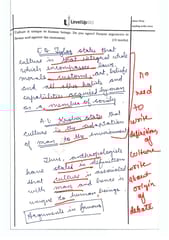 LevelUp IAS
Culture is unique to human beings. Do you agree? Present arguments in favour and against the statement.
E.B. Tylor states that
culture is that integral whole
which encompasses laws,
morals, customs, art, belief
and all other habits and
capabilities acquired by man
as a member of society.
culture is the
man to the environment
Thus, anthropologists
have stated
that culture is associated
with man and hence is
unique to human beings
Arguments in favour
no
need
to
write
definition
of
culture
write
about
origin
of
debate